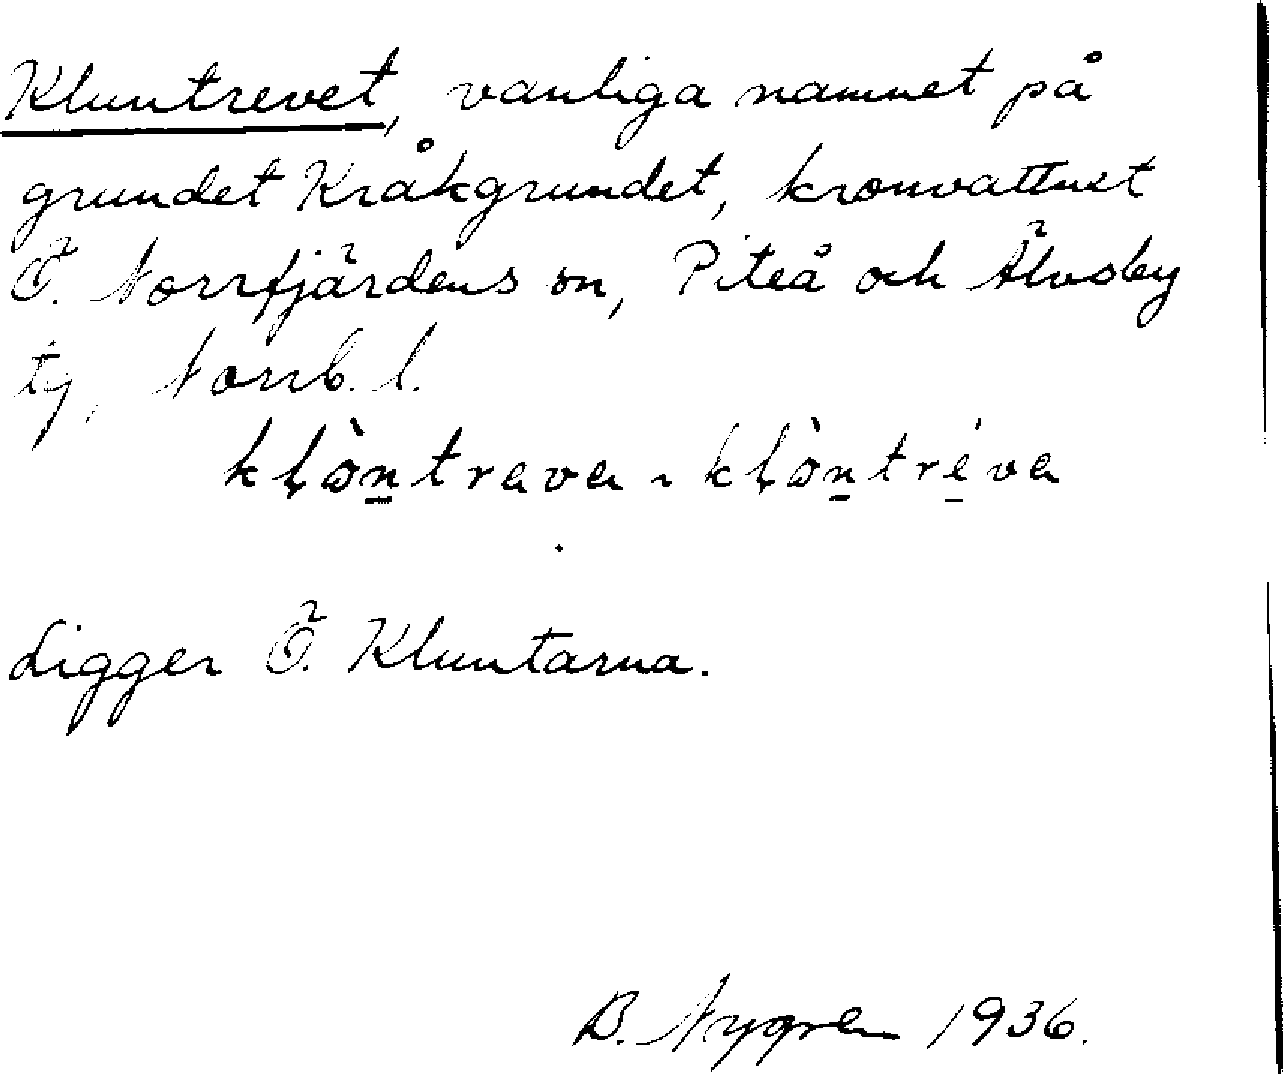 Kluntrevet, vanliga namnet på
grundet Kråkgrundet, kronvattnet
Ö. Norrfjärdens sn, Piteå och Älvsby
tg, Norrb. l.
klòntrava ~ klòntréva
Ligger Ö. Kluntarna.
B. Nygren 1936.